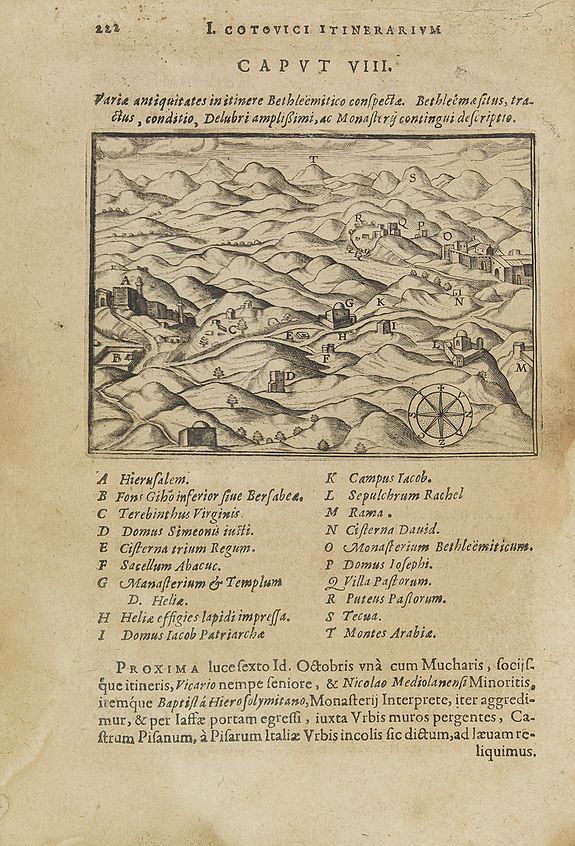 222 I. COTOVICI ITINERARIVM
CAPVT VIII.
Variæ antiquitates in itinere Bethleëmitico conspectæ. Bethleëmæ situs, tra-
ctus, conditio, Delubri amplißimi, ac Monasterij contingui descriptio.
T
S
R Q P
O
A
I N
G K
C
E H I
B F L
M
D
A Hierusalem.
B Fons Gihõ inferior siue Bersabeæ.
C Terebinthus Virginis.
D Domus Simeonis iusti.
E Cisterna trium Regum.
F Sacellum Abacuc.
G Manasterium & Templum
D. Heliæ.
H Heliæ effigies lapidi impressa.
I Domus Iacob Patriarchæ
K Campus Iacob.
L Sepulchrum Rachel
M Rama.
N Cisterna Dauid.
O Monasterium Bethleëmiticum.
P Domus Iosephi.
Q Villa Pastorum.
R Puteus Pastorum.
S Tecua.
T Montes Arabiæ.
PROXIMA luce sexto Id. Octobris vnà cum Mucharis, socijs-
que itineris, Vicario nempe seniore, & Nicolao Mediolanensi Minoritis,
itemque Baptistâ Hierosolymitano, Monasterij Interprete, iter aggredi-
mur, & per Iaffæ portam egressi, iuxta Vrbis muros pergentes, Ca-
strum Pisanum, à Pisarum Italiæ Vrbis incolis sic dictum, ad læuam re-
liquimus.